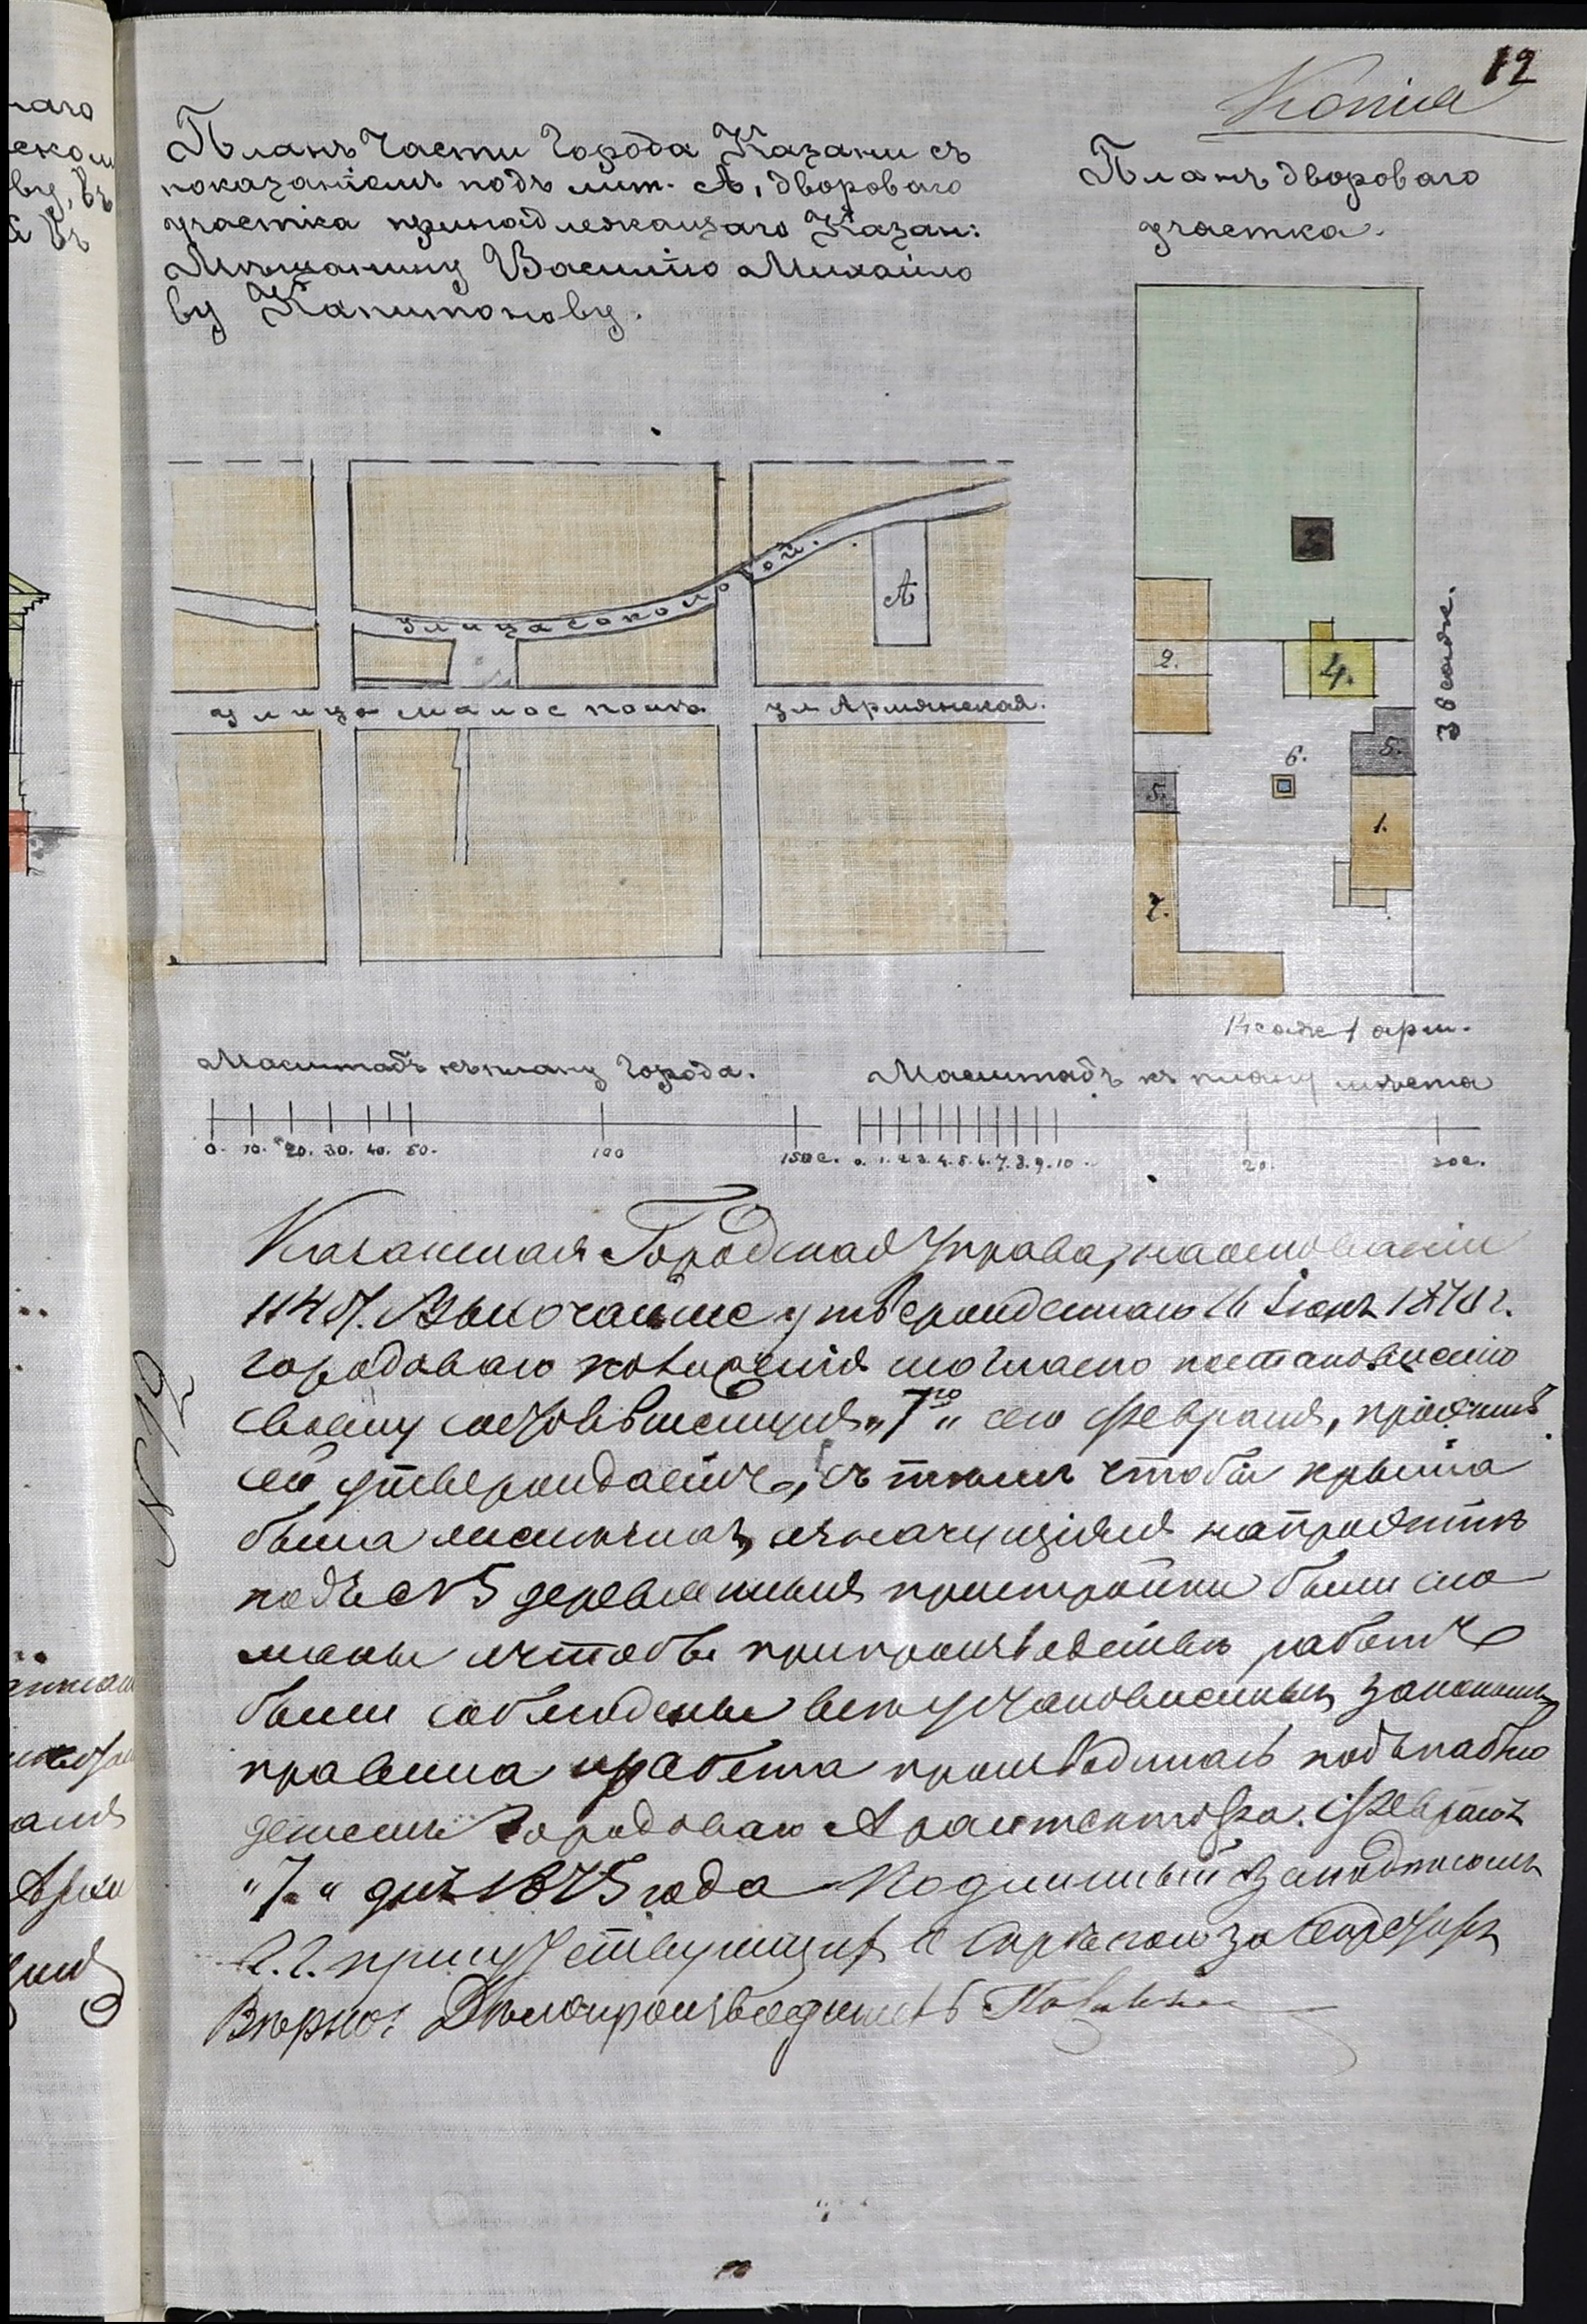 12
Копія
Планъ Части Города Казани съ
показаніемъ подъ лит. А, дворового
участка принадлежащаго Казан:
Мѣщанину Василію Михайло
ву Капитонову.
Планъ дворового
участка.
улица
А
улица
ул Армянская.
3
2.
4.
5.
6.
5.
1.
7.
саж.
саж 1 арш.
Масштабъ къ плану Города.
0. 10. 20. 30. 40. 50. 100 150 с.
Масштабъ къ плану мѣста
0. 1. 2. 3. 4. 5. 6. 7. 8. 9. 10. 20. 30 с.
Казанская Городская Управа, на основаніи
114 ст. Высочайше утвержденнаго 16 Іюня 1870 г.
городоваго положенія согласно постановленію
своему состоявшемуся „7го“ сего февраля, проэктъ
сей утверждаетъ, съ тѣмъ чтобы крыша
была желѣзная, и значущіяся на проэктѣ
подъ № 5 деревянныя пристройки были сло
маны и чтобы при производствѣ работъ
были соблюдены всѣ установленныя закономъ
правила и работа производилась подъ наблю
деніемъ Городоваго Архитектора. Февраля
„7“ дня 1875 года Подлинный за подписомъ
Г.г. присутствующихъ и скрѣпою за Секретаря
Вѣрно: Дѣлопроизводитель
№ 12